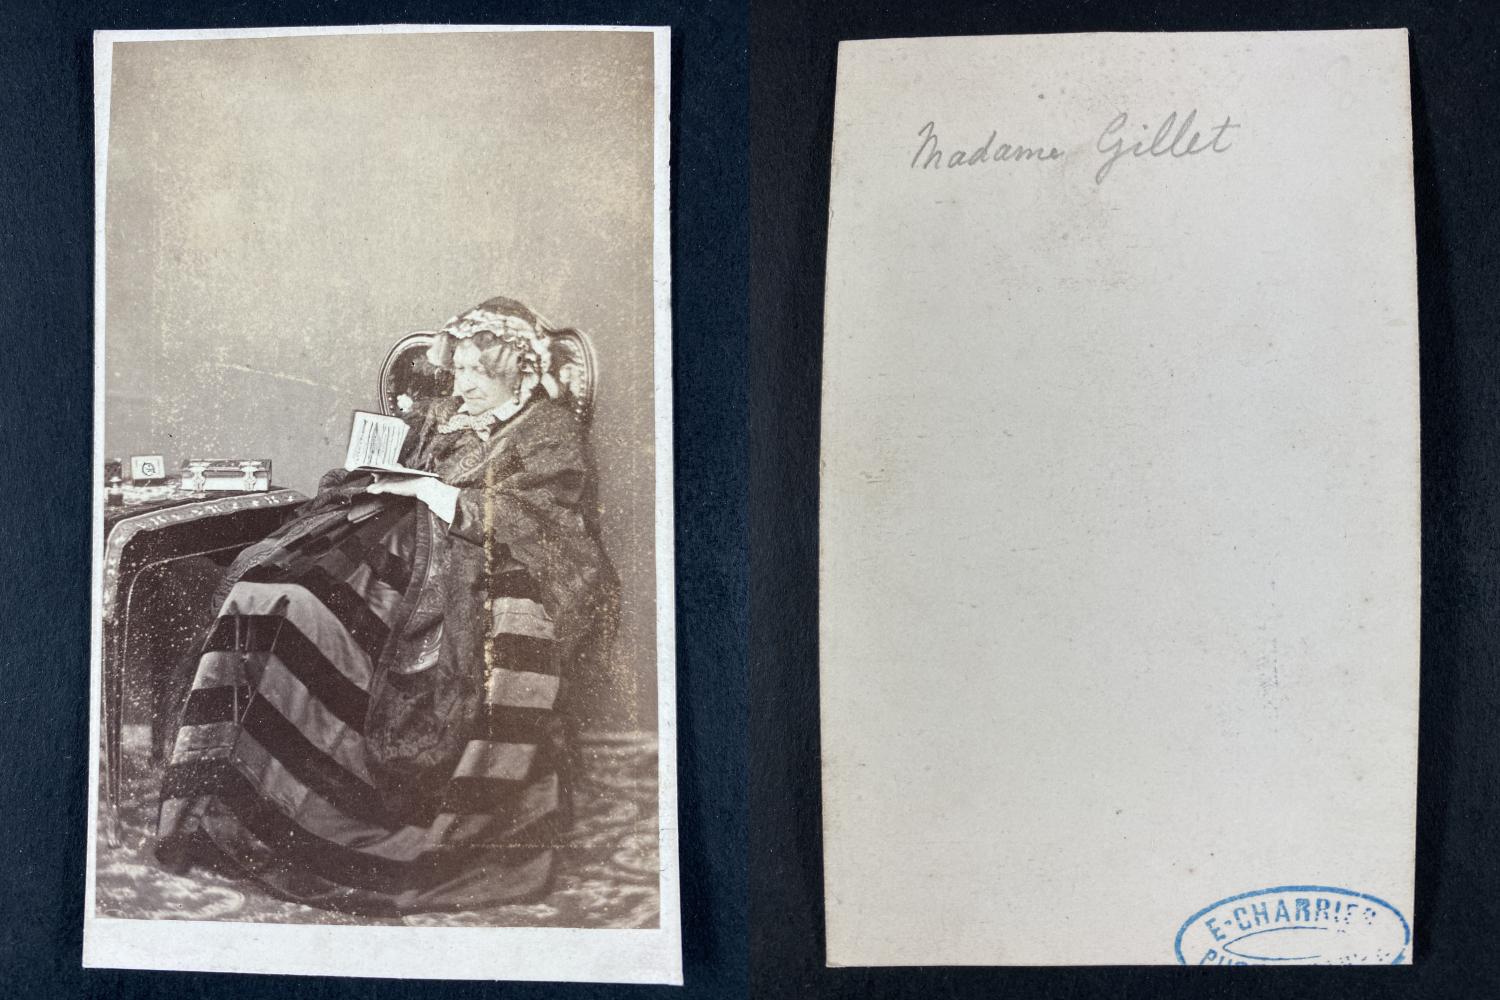 Madame Gillet
E. CHARRIER